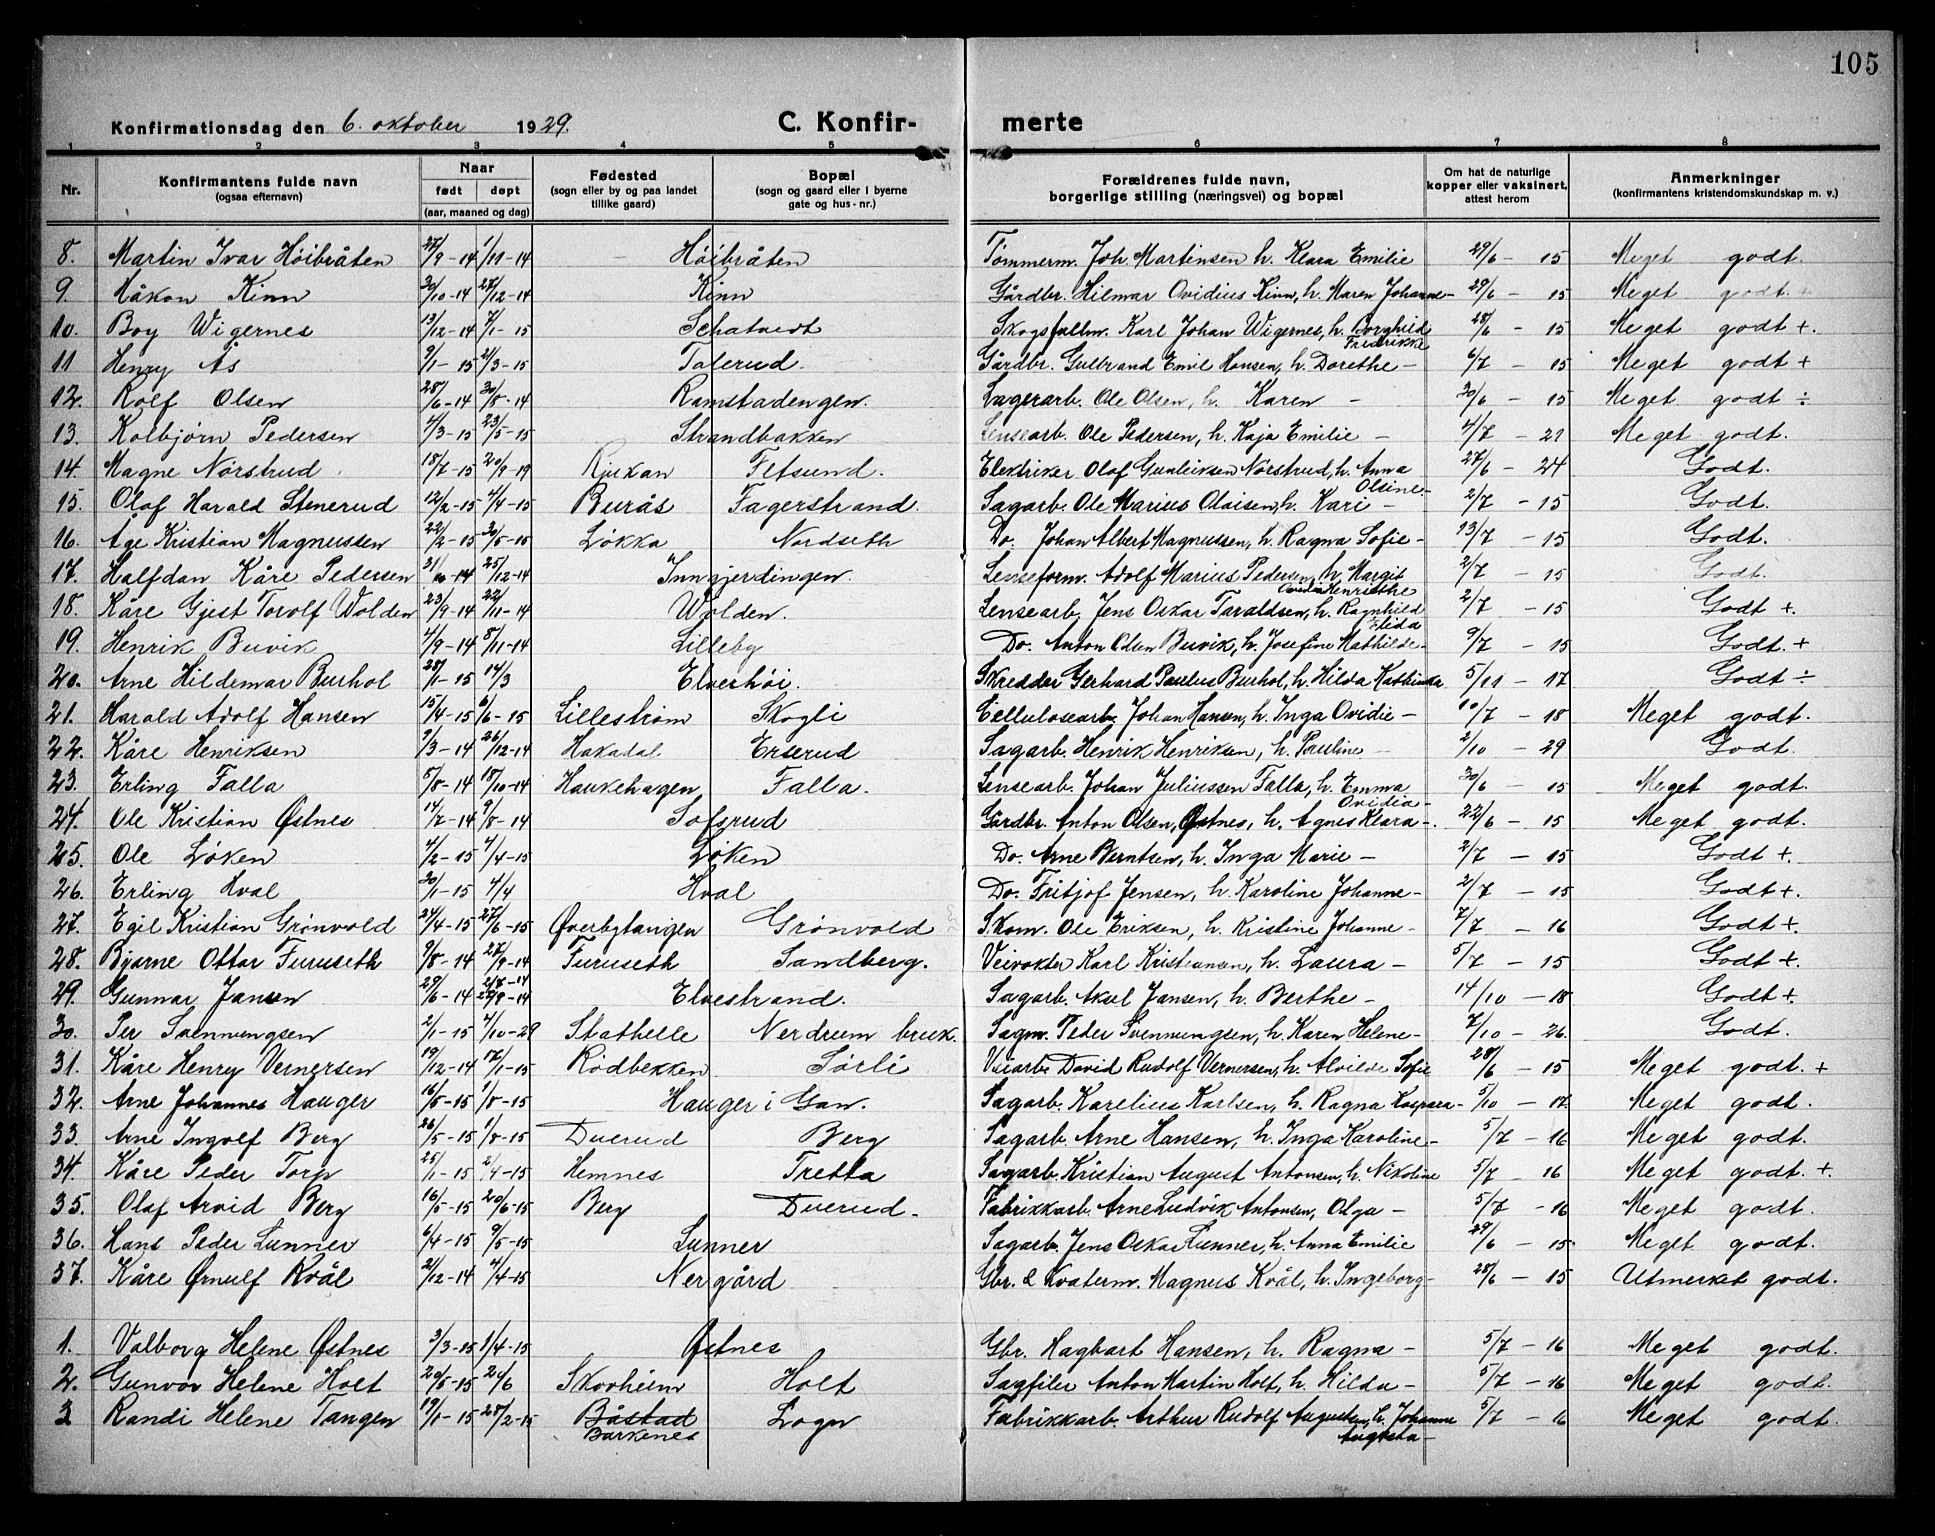 105
Konfirmationsdag den 6. oktober 1929.
C. Konfirmerte
1 2 3 4 5 6 7 8
Nr. Konfirmantens fulde navn (ogsaa efternavn) Naar født døpt (aar, maaned og dag) Fødested (sogn eller by og paa landet tillike gaard) Bopæl (sogn og gaard eller i byerne gate og hus-nr.) Forældrenes fulde navn, borgerlige stilling (næringsvei) og bopæl Om hat de naturlige kopper eller vaksinert, attest herom Anmerkninger (konfirmantens kristendomskundskap m. v.)
8. Martin Ivar Høibråten 27/9-14 1/11-14 Høibråten Tømmerm. Joh. Martinsen h. Klara Emilie 29/6 - 15 Meget godt.
9. Håkon Kinn 30/10-14 27/12-14 Kinn Gårdbr. Hilmar Ovidius Kinn, h. Maren Johanne- 29/6 - 15 Meget godt. +
10. Boy Wigernes 13/12-14 7/1-15 Schatvedt Skogsfullm. Karl Johan Wigernes, h. Borghild Fredrikke 28/6 - 15 Meget godt +.
11 Henry Ås 9/1-15 2/3-15 Tolerud. Gårdbr. Gulbrand Emil Hansen, h. Dorethe - 6/7 - 15 Meget godt +
12. Rolf Olsen 28/6-14 30/8-14 Ramstadengen. Lagerarb. Ole Olsen, h. Karen - 30/6 - 15 Meget godt ÷
13. Kolbjørn Pedersen 4/3-15 23/5-15 Strandbakken Lensearb. Ole Pedersen, h. Kaja Emilie - 4/7 - 21 Meget godt.
14. Magne Nørstrud 18/7-15 20/9-19 Rjukan Fetsund. Elektriker Olaf Gunleiksen Nørstrud, h. Anna Olsine- 27/6 - 24 Godt.
15. Olaf Harald Stenerud 12/2-15 4/4-15 Burås Fagerstrand. Sagarb. Ole Marius Olaisen, h. Kari - 2/7 - 15 Godt.
16. Åge Kristian Magnussen 22/2-15 30/5-15 Løkka Nordseth Do. Johan Albert Magnussen, h. Ragna Sofie- 13/7 - 15 Godt.
17. Halfdan Kåre Pedersen 31/10-14 25/12-14 Inngjerdingen. Lenseform. Adolf Marius Pedersen, h. Margit Ovidia Henriethe 2/7 - 15 Godt.
18. Kåre Gjest Torolf Wolden 23/9-14 22/11-14 Wolden. Lensearb. Jens Oskar Taraldsen, h. Ragnhild Elida 2/7 - 15 Godt +.
19. Henrik Buvik 4/9-14 8/11-14 Lilleby Do. Anton Olsen Buvik, h. Josefine Mathilde- 9/7 - 15 Godt. +
20. Arne Hildemar Burhol 28/1-15 14/3 Elverhøi. Skredder Gerhard Paulus Burhol, h. Hilda Kathinka 5/11 - 17 Godt ÷
21. Harald Adolf Hansen 15/4-15 6/6-15 Lillestrøm Skogli Cellulosearb. Johan Hansen, h. Inga Ovidie - 10/7 - 18 Meget godt.
22. Kåre Henriksen 9/3-14 26/12-14 Hakadal Erserud Sagarb. Henrik Henriksen, h. Pauline - 2/10 - 29 Godt.
23. Erling Falla 5/8-14 18/10-14 Haukehagen Falla. Lensearb. Johan Juliussen Falla, h. Emma Ovidia- 30/6 - 15 Meget godt.
24. Ole Kristian Østnes 14/7-14 9/8-14 Lofsrud Gårdbr. Anton Olsen, Østnes, h. Agnes Klara -. 22/6 - 15 Meget godt.
25. Ole Løken 4/2-15 4/4-15 Løken Do. Arne Berntsen, h. Inga Marie - 2/7 - 15 Godt +.
26. Erling Hval 30/1-15 4/4 Hval Do. Fritjof Jensen, h. Karoline Johanne- 2/7 - 15 Godt +.
27. Egil Kristian Grønvold 24/4-15 27/6-15 Øverbytangen Grønvold Skom. Ole Eriksen, h. Kristine Johanne- 7/7 - 16 Godt +.
28. Bjarne Ottar Furuseth 9/8-14 27/9-14 Furuseth Sandberg. Veivokter Karl Kristiansen, h. Laura - 5/7 - 15 Godt +.
29. Gunnar Jansen 29/6-14 27/9-14 Elvestrand. Sagarb. Aksel Jansen, h. Berthe - 14/10 - 18 Godt +.
30. Per Svennungsen 2/1-15 4/10-29 Stathelle Nerdrum bruk. Sagm. Peder Svennungsen, h. Karen Helene- 7/10 - 26. Godt.
31. Kåre Henry Vernersen 19/12-14 17/1-15 Rødbekken Sørli Veiarb. David Rudolf Vernersen, h. Alvilde Sofie 28/6 - 15 Meget godt. +
32. Arne Johannes Hauger 16/5-15 1/8-15 Hauger i Gan. Sagarb. Karelius Karlsen, h. Ragna Kaspara- 5/10 - 17. Meget godt.
33. Arne Ingolf Berg 26/5-15 1/8-15 Duerud Berg Sagarb. Arne Hansen, h. Inga Karoline- 5/7 - 16 Meget godt.
34. Kåre Peder Torp 25/1-15 2/4-15 Hemnes Tretta Sagarb. Kristian August Antonsen, h. Nikoline 5/7 - 16 Meget godt. +.
35. Olaf Arvid Berg 16/5-15 20/6-15 Berg Duerud. Fabrikkarb. Arne Ludvik Antonsen, Olga - 5/7 - 16 Meget godt.
36. Hans Peder Lunner 6/4-15 9/5-15 Lunner Sagarb. Jens Oskar Lunner, h. Anna Emilie 29/6 - 15. Meget godt.
37. Kåre Ørnulf Kvål 21/12-14 4/4-15 Nergård Gbr. & Kvaterm. Magnus Kvål, h. Ingeborg- 28/6 - 15 Utmerket godt.
1. Valborg Helene Østnes 3/3-15 1/4-15 Østnes Gbr. Hagbart Hansen, h. Ragna - 5/7 - 16 Meget godt.
2. Gunvor Helene Holt 20/5-15 24/6 Skovheim Holt Sagfiler Anton Martin Holt, h. Hilda - 5/7 - 16 Meget godt.
3 Randi Helene Tangen 19/1-15 28/2-15 Båstad Barkenes Logn Fabrikkarb. Arthur Rudolf Augustsen, h. Johanne Augusta - 5/7 - 16 Meget godt.